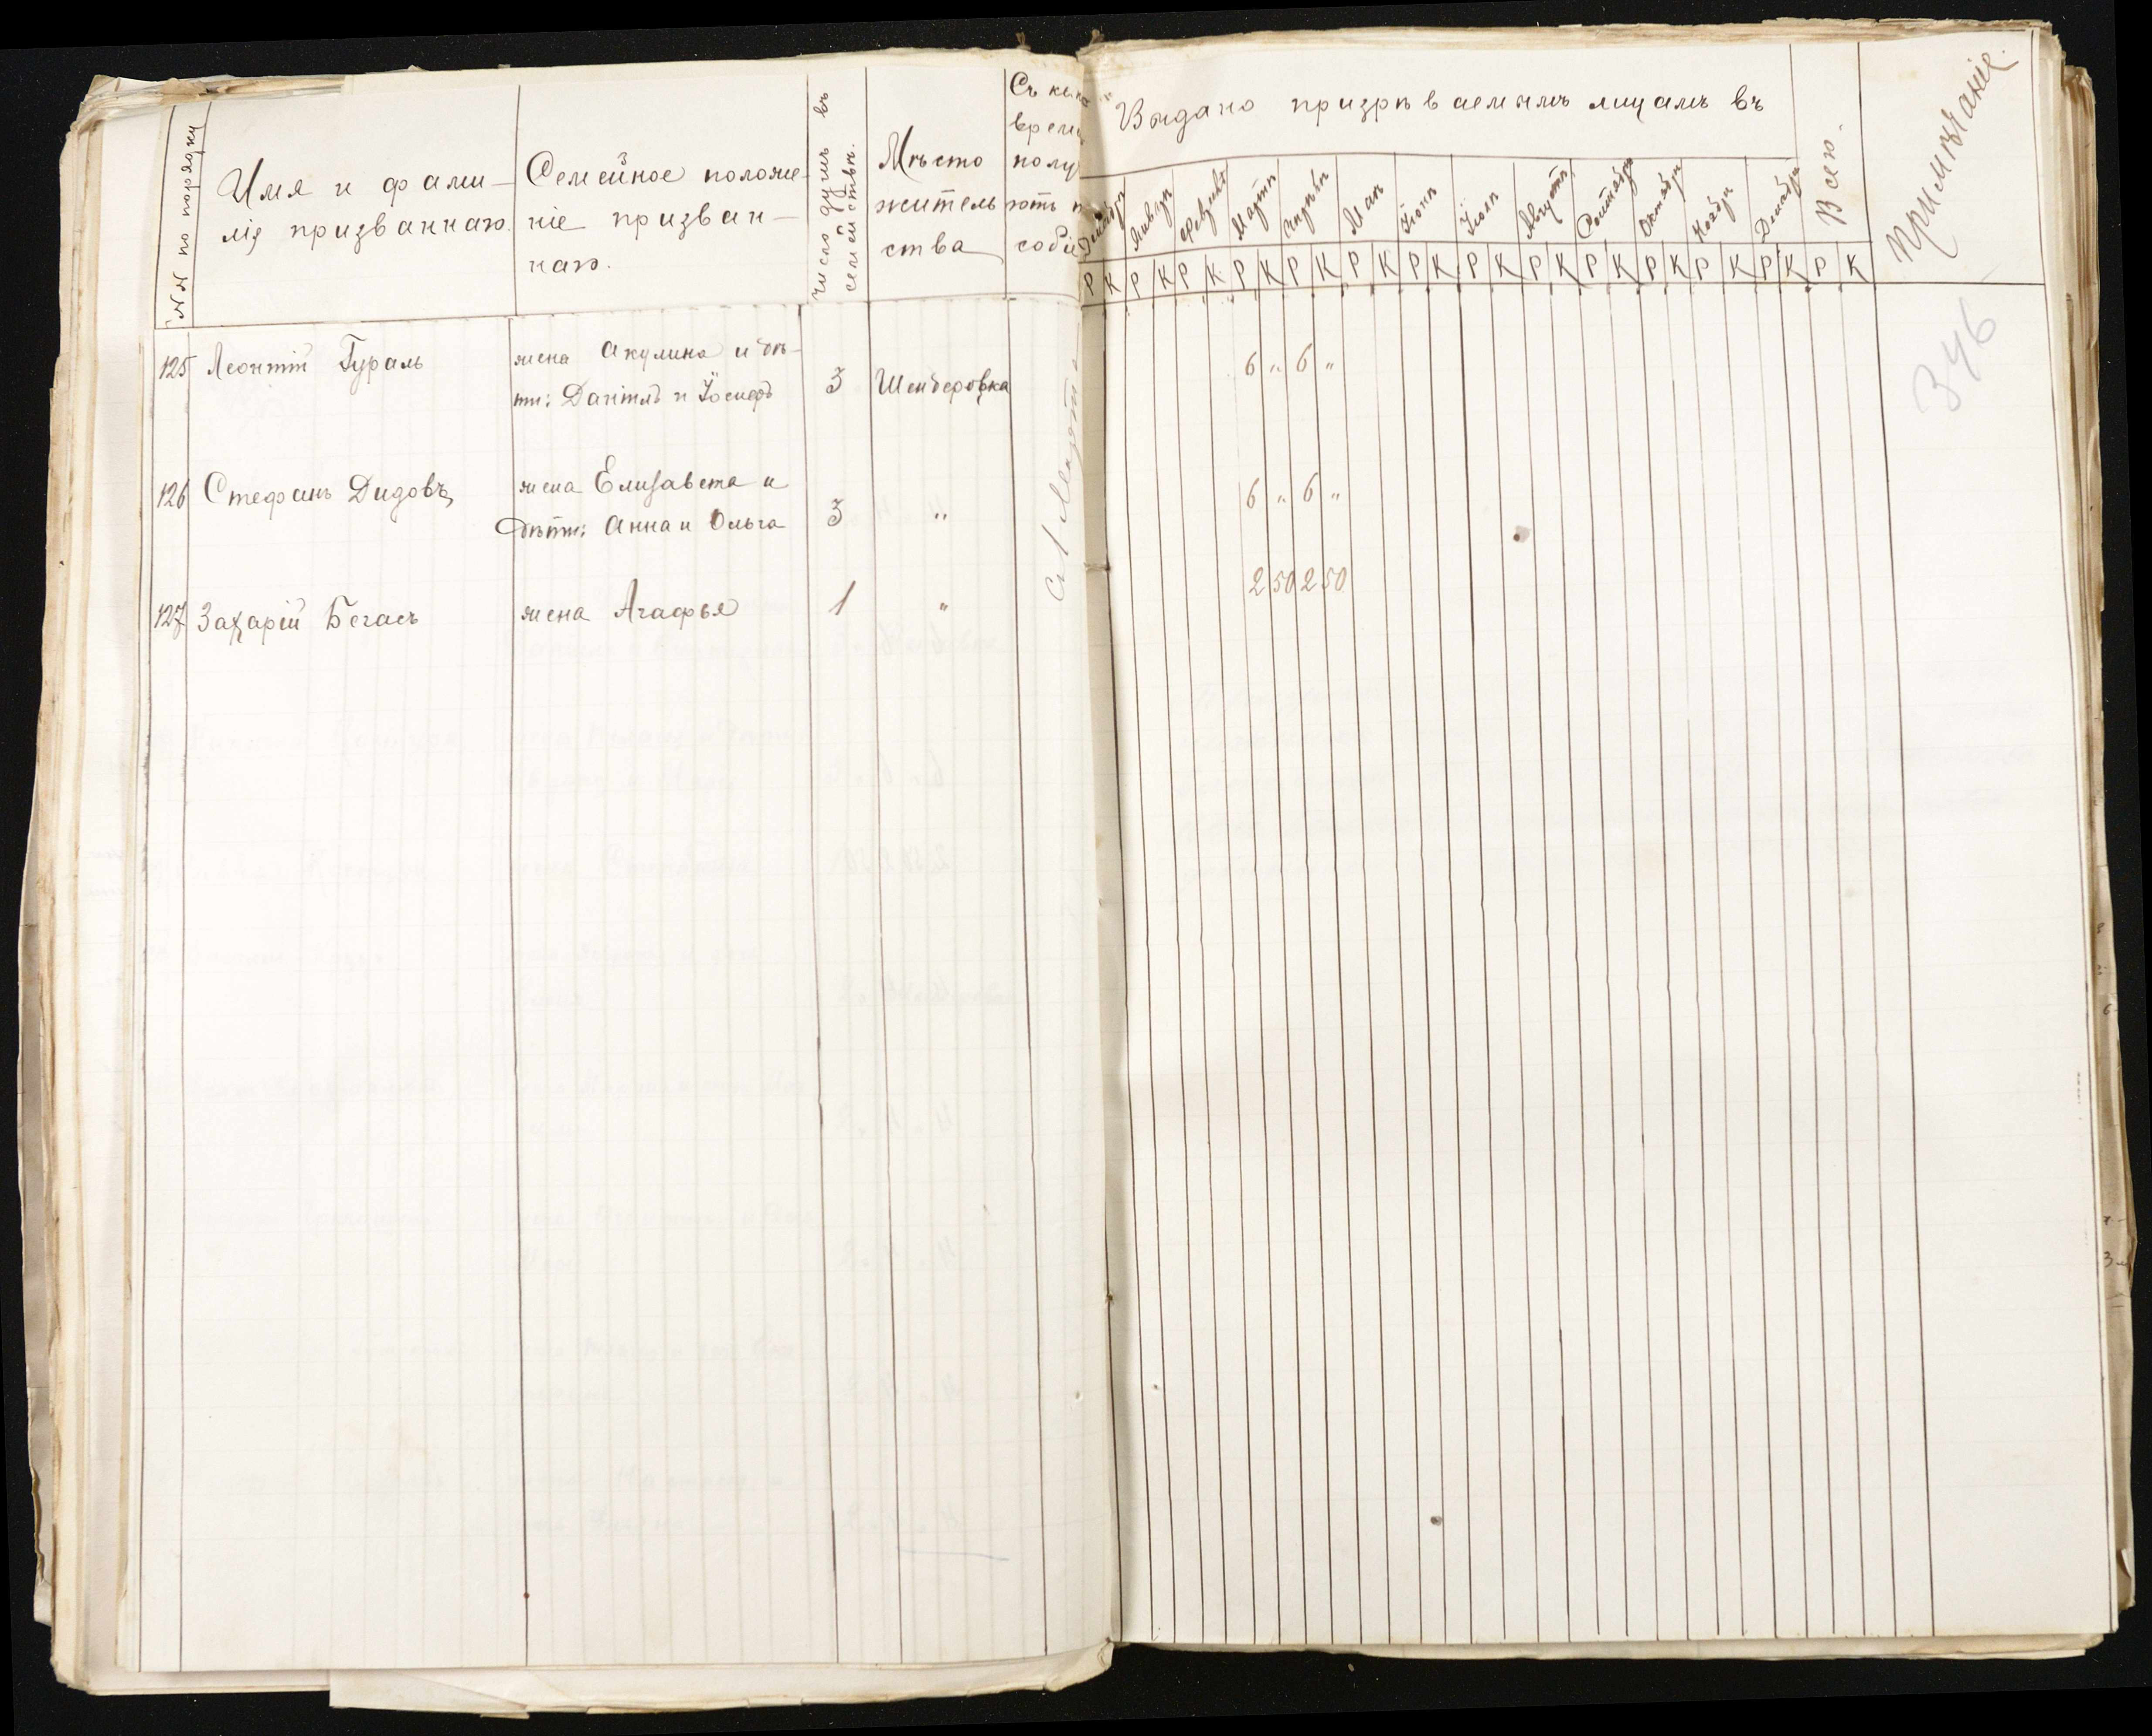 №№ по порядку
Имя и фами-
лія призваннаго.
Семейное положе
ніе призван-
наго.
Число душъ въ
семействѣ.
Мѣсто
житель
ства
Съ
полу
собі
Выдано призрѣваемымъ лицамъ въ
Январѣ
Февралѣ
Мартѣ
Апрѣлѣ
Маѣ
Іюнѣ
Іюлѣ
Августѣ
Сентябрѣ
Октябрѣ
Ноябрѣ
Декабрѣ
Всего.
Примѣчаніе.
Р К Р К Р К Р К Р К Р К Р К Р К Р К Р К Р К Р К Р К Р К
346
125 Леонтій Гураль жена Акулина и дѣ-
ти: Даніилъ и Іосифъ 3 Шендеровка 6 „ 6 „
126 Стефанъ Дидовъ жена Елизавета и
дѣти: Анна и Ольга 3 „ 6 „ 6 „
127 Захарій Бегасъ жена Агафья 1 „ 2 50 2 50
Съ 1 Марта